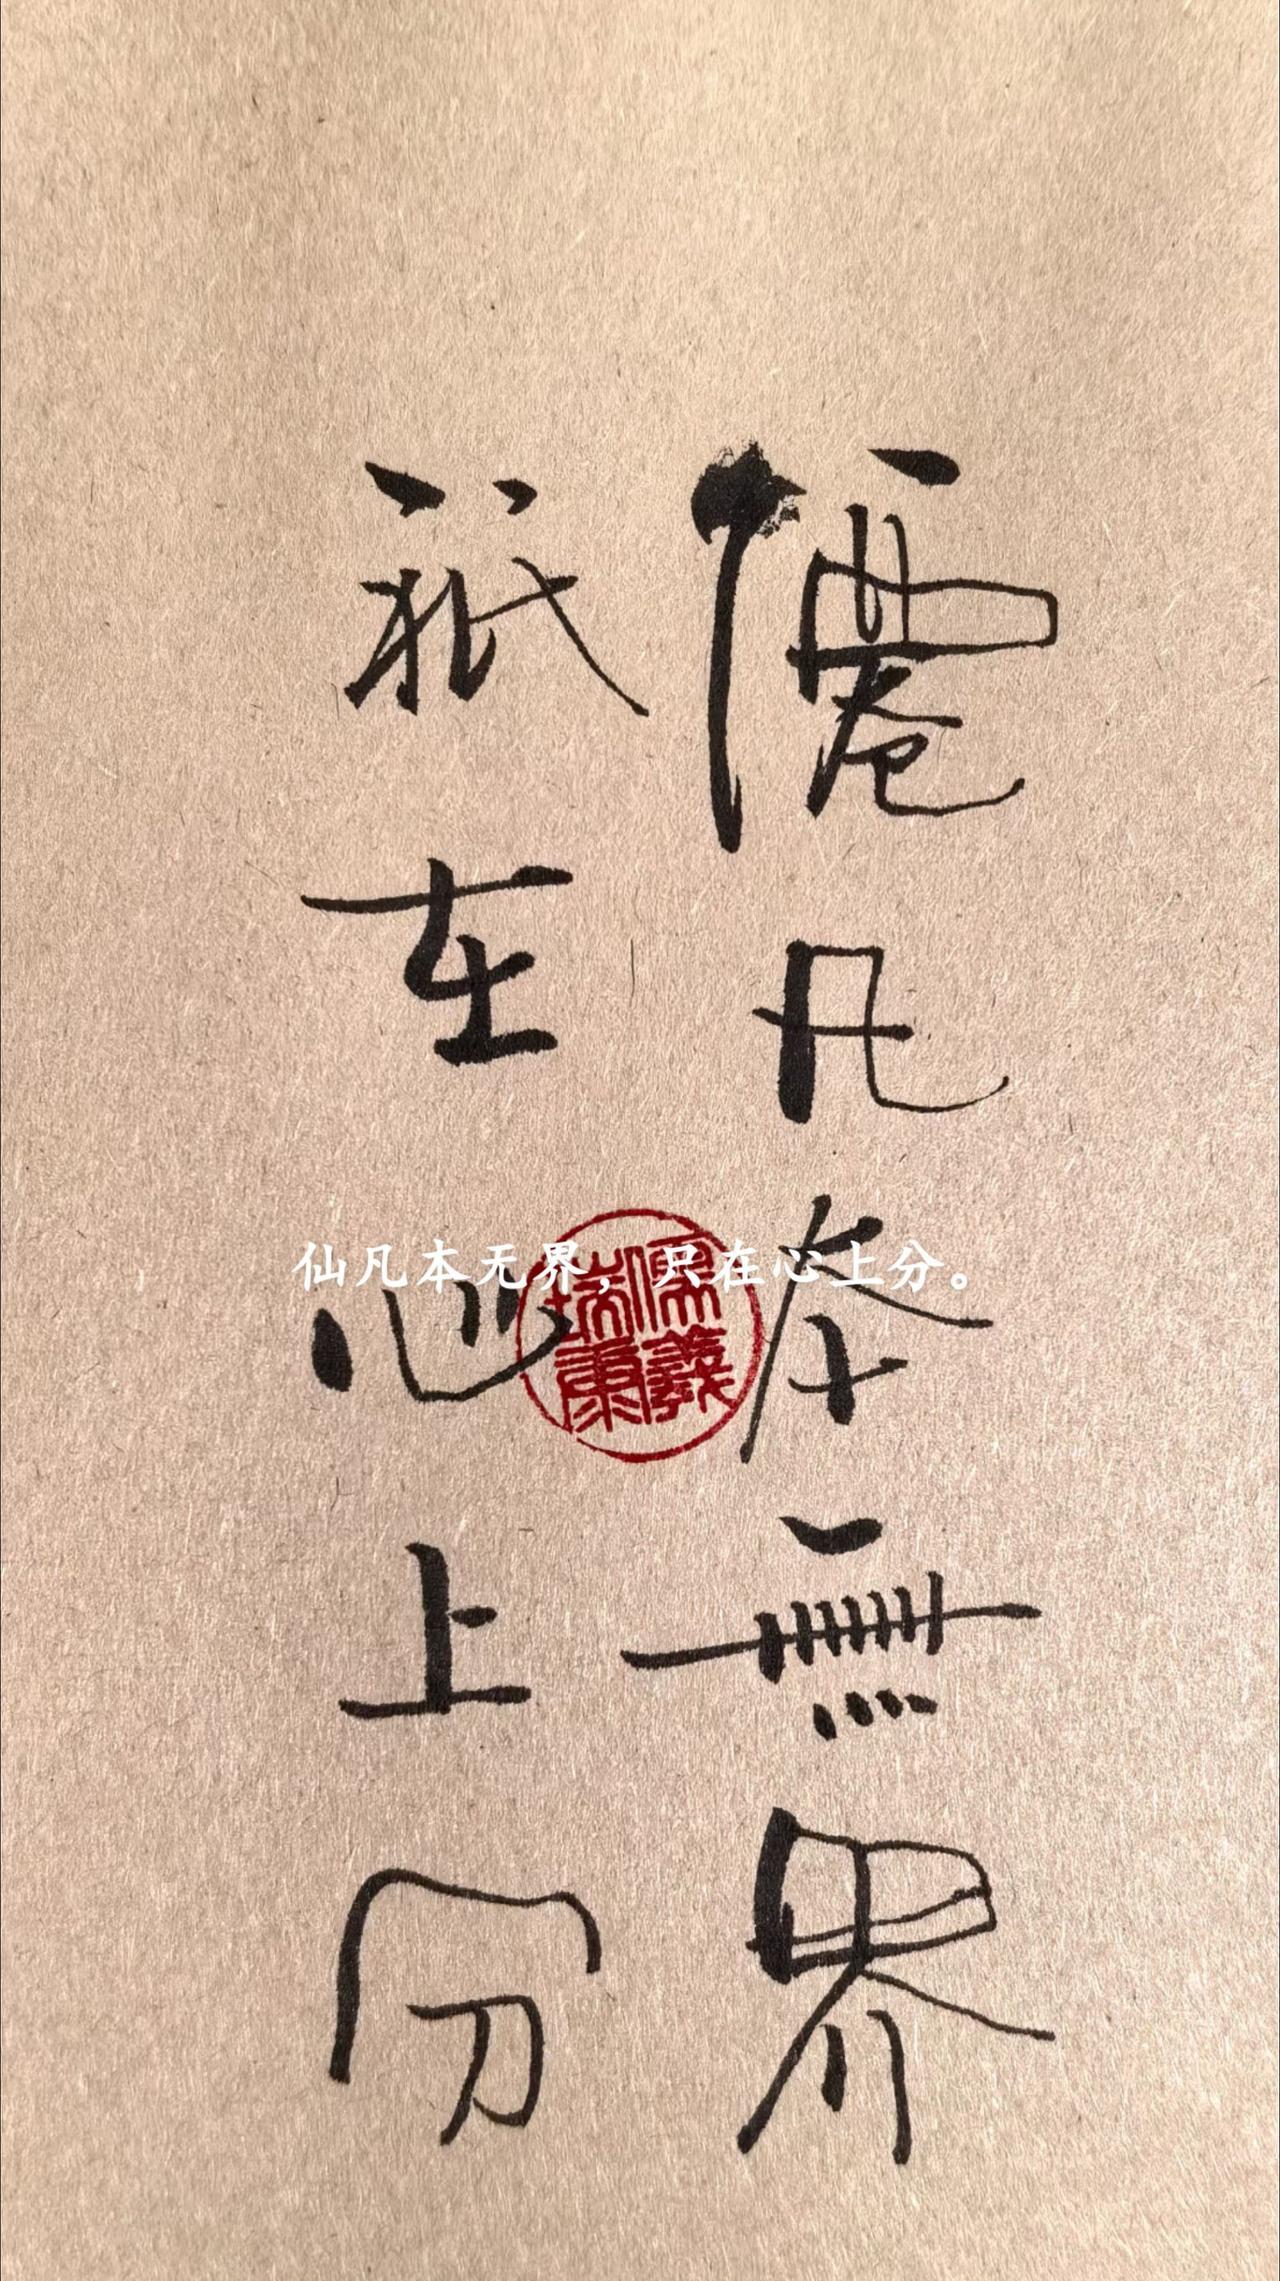 僊凡本無界
祇在心上分
仙凡本无界，只在心上分。
儒義
瑞康